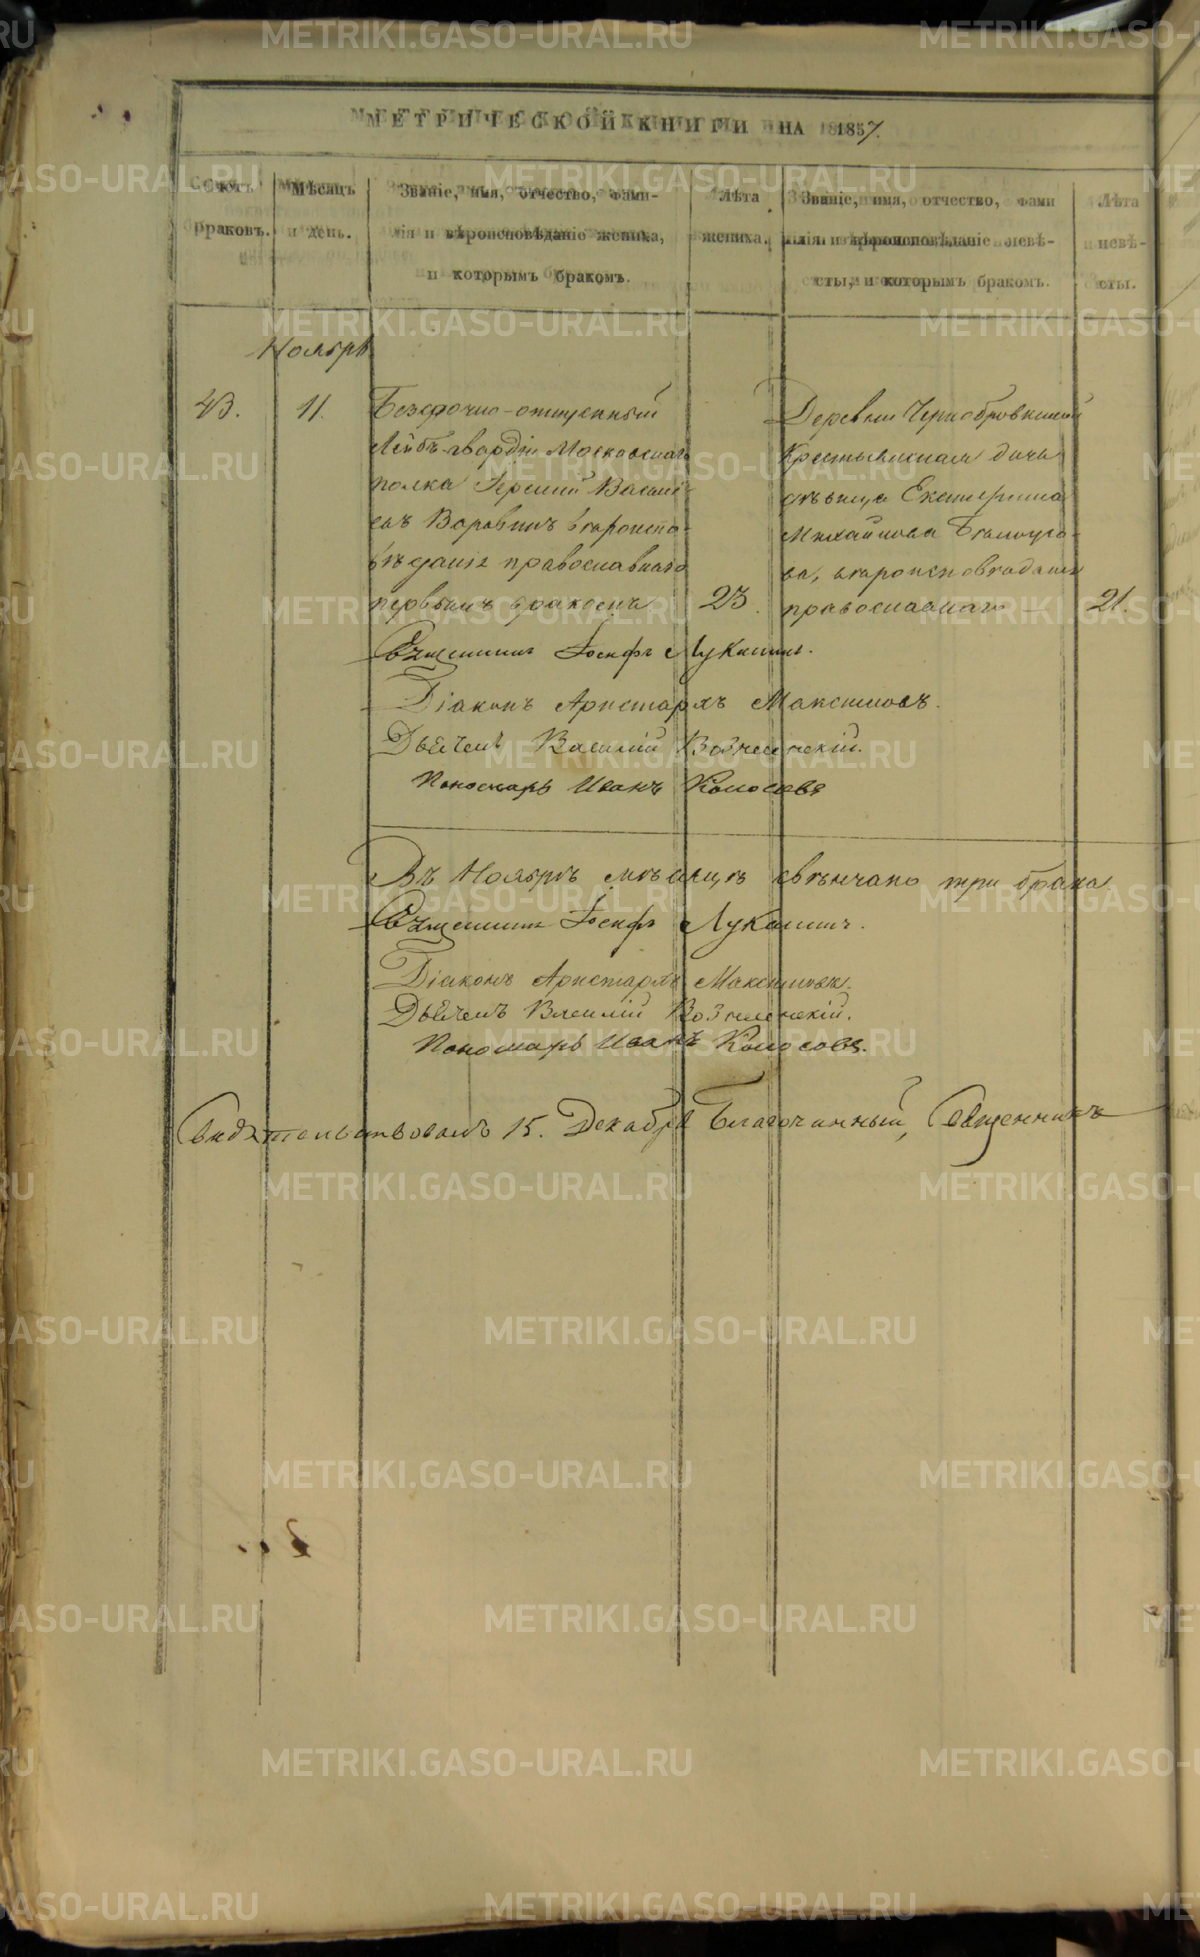 МЕТРИЧЕСКОЙ КНИГИ НА 1857.
Счетъ браковъ.
Мѣсяцъ и день.
Званіе, имя, отчество, фами-
лія и вѣроисповѣданіе жениха,
и которымъ бракомъ.
Лѣта
жениха.
Званіе, имя, отчество, фами
лія и вѣроисповѣданіе невѣ-
сты, и которымъ бракомъ.
Лѣта
невѣ-
сты.
Ноябрь
43.
11.
Безсрочно-отпущенный
Лейбъ-гвардіи Московскаго
полка Василь-
евъ вѣроиспо-
вѣданія православнаго
первымъ бракомъ
23.
Деревни
Крестьянская дочь
дѣвица Екатерина
Михайлова
ва, вѣроисповѣданія
православнаго
21.
Священникъ Іосифъ Лукинъ.
Діаконъ Аристархъ Максимовъ.
Дьячекъ Василій Вознесенскій.
Пономарь Иванъ Колосовъ
Въ Ноябрѣ мѣсяцѣ свѣнчано три брака.
Священникъ Іосифъ Лукинъ.
Діаконъ Аристархъ Максимовъ.
Дьячекъ Василій Вознесенскій.
Пономарь Иванъ Колосовъ.
Свидѣтельствовалъ 15. Декабря Благочинный, Священникъ
METRIKI.GASO-URAL.RU